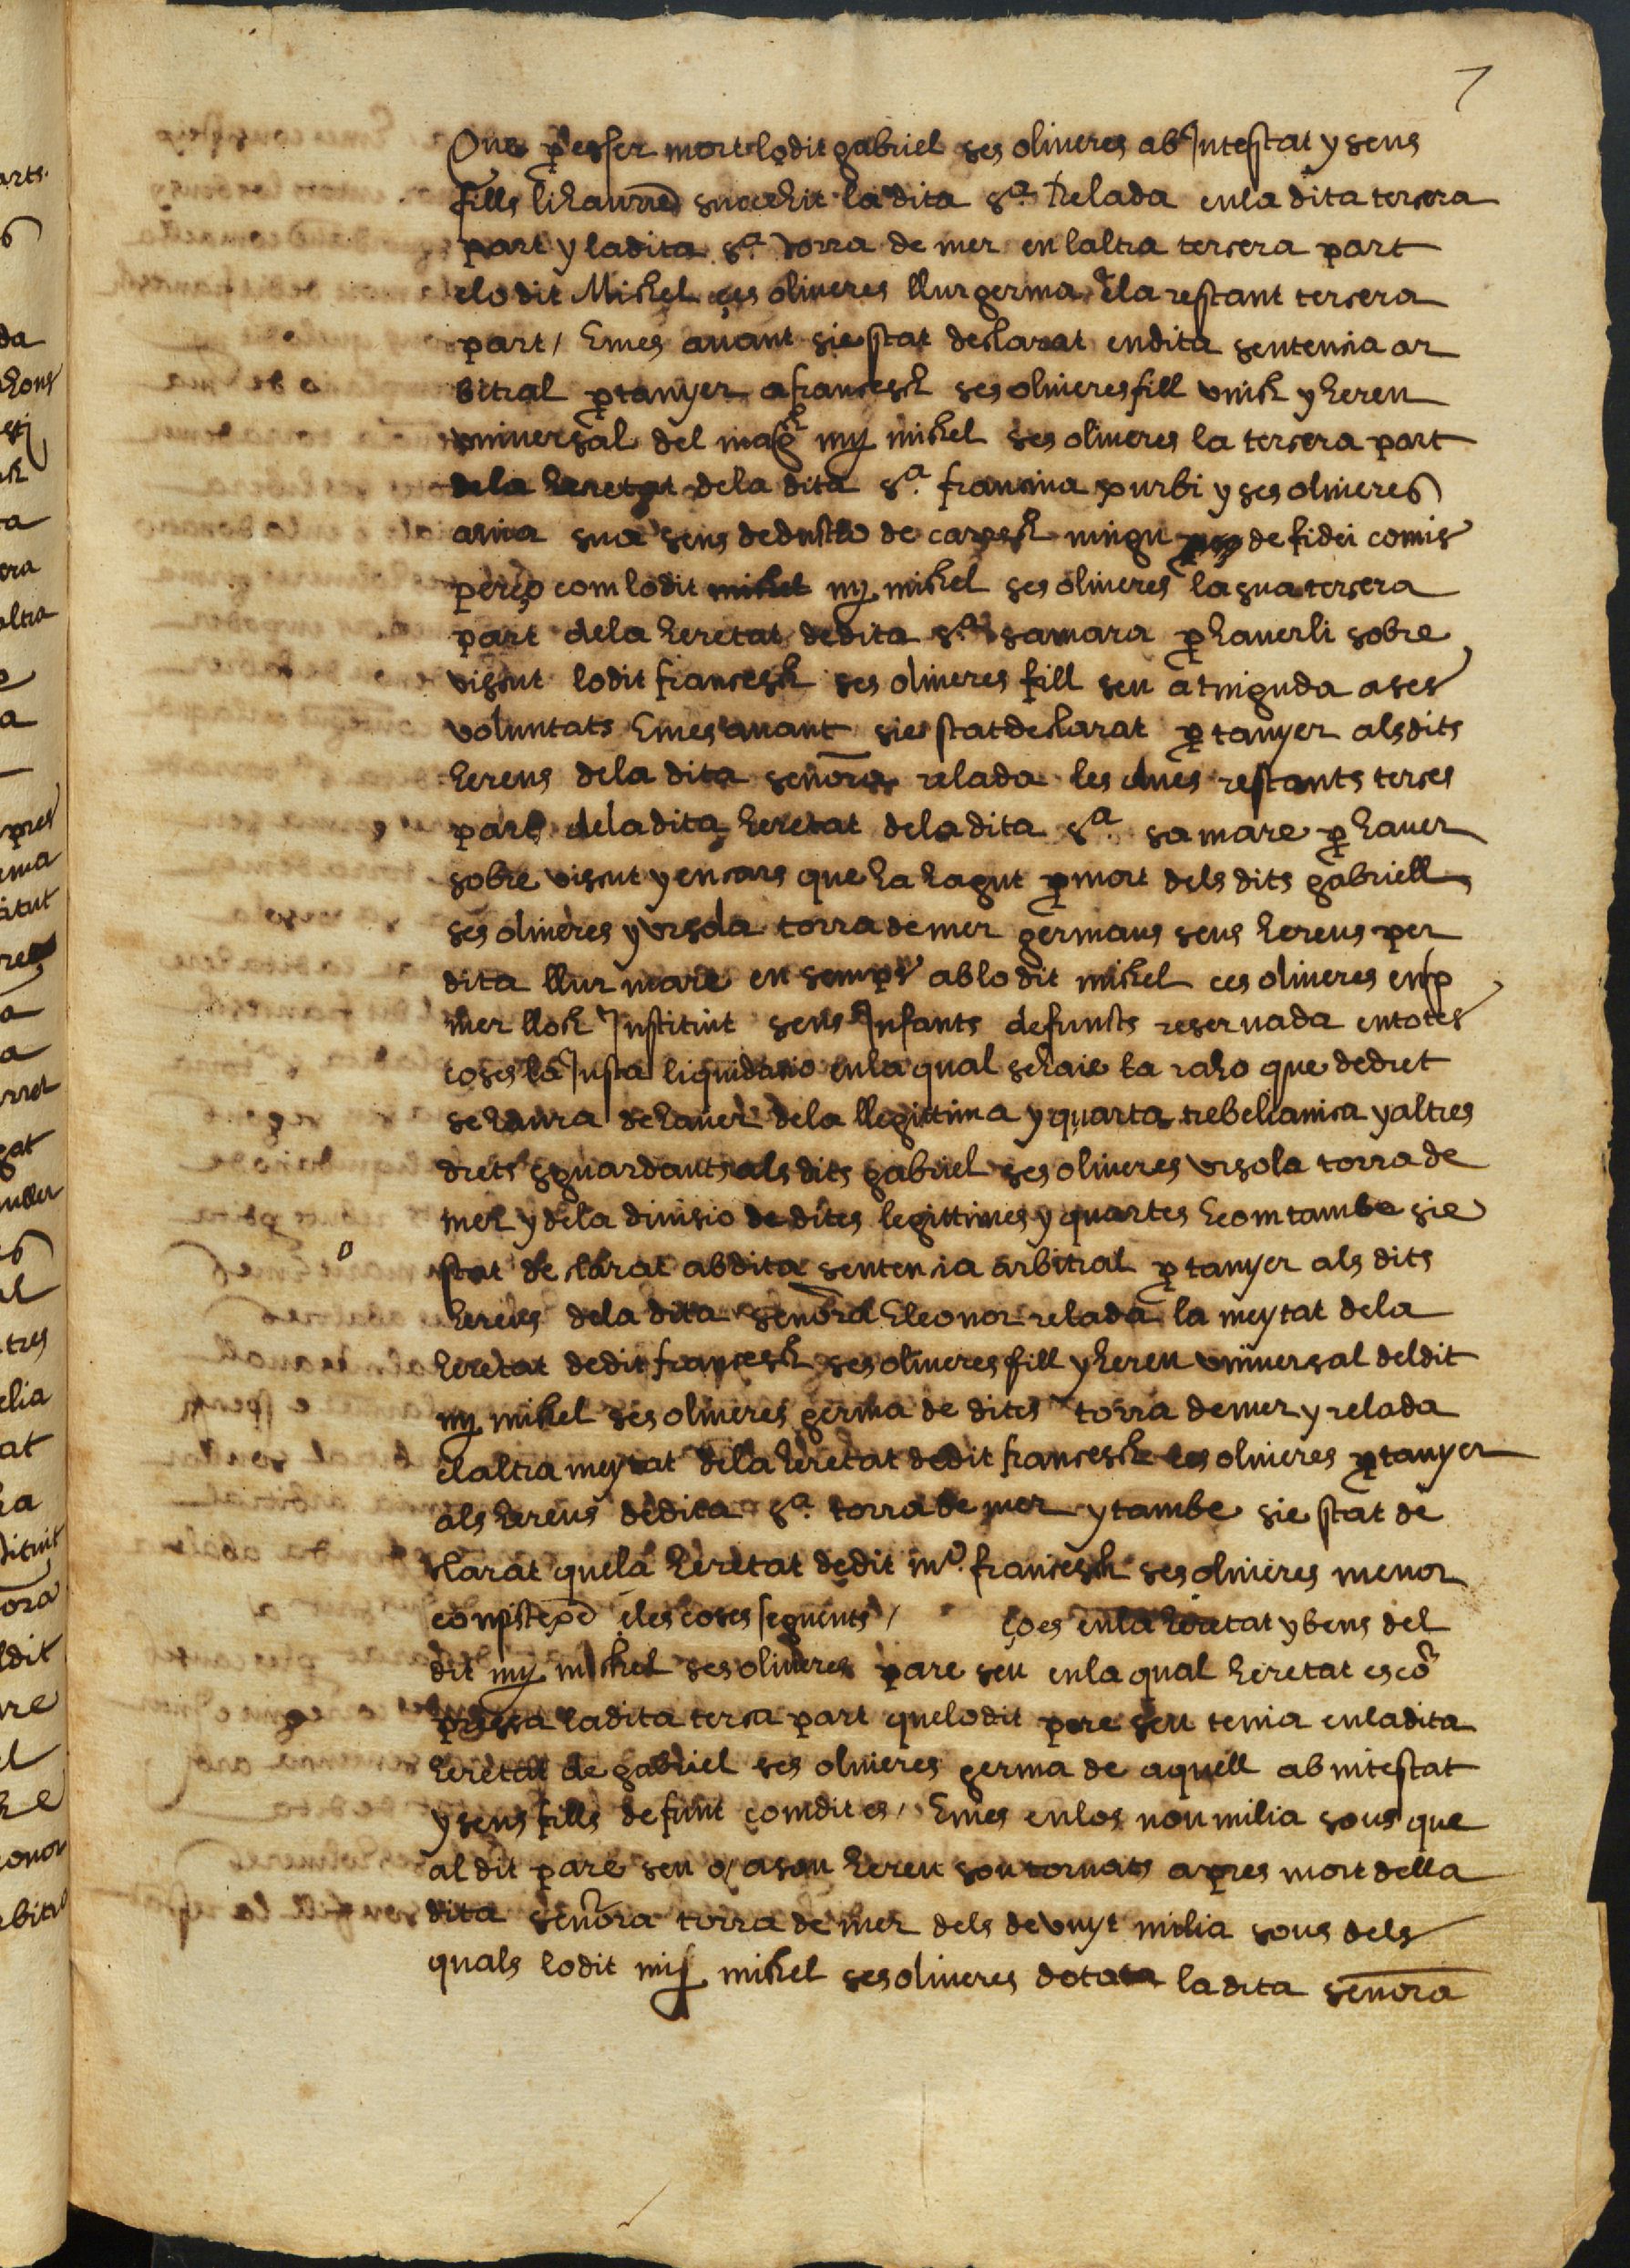 7
Que p esser mort lo dit gabriel ses oliueres ab Intestat y sens
fills li haurie succehit la dita s.ª Relada en la dita tersera
part y la dita s.ª torra de mer en laltra tersera part
e lo dit Michel ses oliueres llur germa e la restant tersera
part / E mes auant sie stat declarat en dita sentencia ar
bitral ptanyer a francesch ses oliueres fill vnich y hereu
vniuersal del magch my michel ses oliueres la tersera part
de la heretat de la dita s.ª francina purbi y ses oliueres
auia sua sens deductio de carrech ningu de fidei comis
perço com lo dit michel my michel ses oliueres la sua tersera
part de la heretat de dita s.ª sa mara p hauerli sobre
viscut lo dit francesch ses oliueres fill seu atniguda a ses
voluntats E mes auant sie stat declarat ptanyer als dits
hereus de la dita señora relada les dues restants terses
parts de la dita heretat de la dita s.ª sa mare p hauer
sobre viscut y encara que ha hagut p mort dels dits gabriell
ses oliueres y vrsola torra de mer germans sens hereus per
dita llur mare en semps ab lo dit michel ces oliueres en p
mer lloch Instituit sens Infants defuncts reseruada en totes
coses la Justa liquidatio en la qual se haie la raho que de dret
se haura de hauer de la llegittima y quarta trebelianica y altres
drets sguardants als dits gabriel ses oliueres vrsola torra de
mer y de la diuisio de dites legittimes y quartes E com tambe sie
stat declarat ab dita sentencia arbitral ptanyer als dits
hereus de la dita señora Eleonor relada la meytat de la
heretat de dit francesch ses oliueres fill y hereu vniuersal del dit
my michel ses oliueres germa de dites torra de mer y relada
e laltra meytat de la heretat de dit francesch ses oliueres ptanyer
als hereus de dita s.ª torra de mer y tambe sie stat de
clarat que la heretat de dit mº. francesch ses oliueres menor
consistexe e les coses seguents / ço es en la heretat y bens del
dit my michel ses oliueres pare seu en la qual heretat es cô
presa la dita tersa part que lo dit pare seu tenia en la dita
heretat de gabriel ses oliueres germa de aquell ab intestat
y sens fills defunt com dit es / E mes en los nou milia sous que
al dit pare seu o / a son hereu son tornats apres mort della
dita señora torra de mer dels de vuyt milia sous dels
quals lo dit mis michel ses oliueres dotata la dita señora